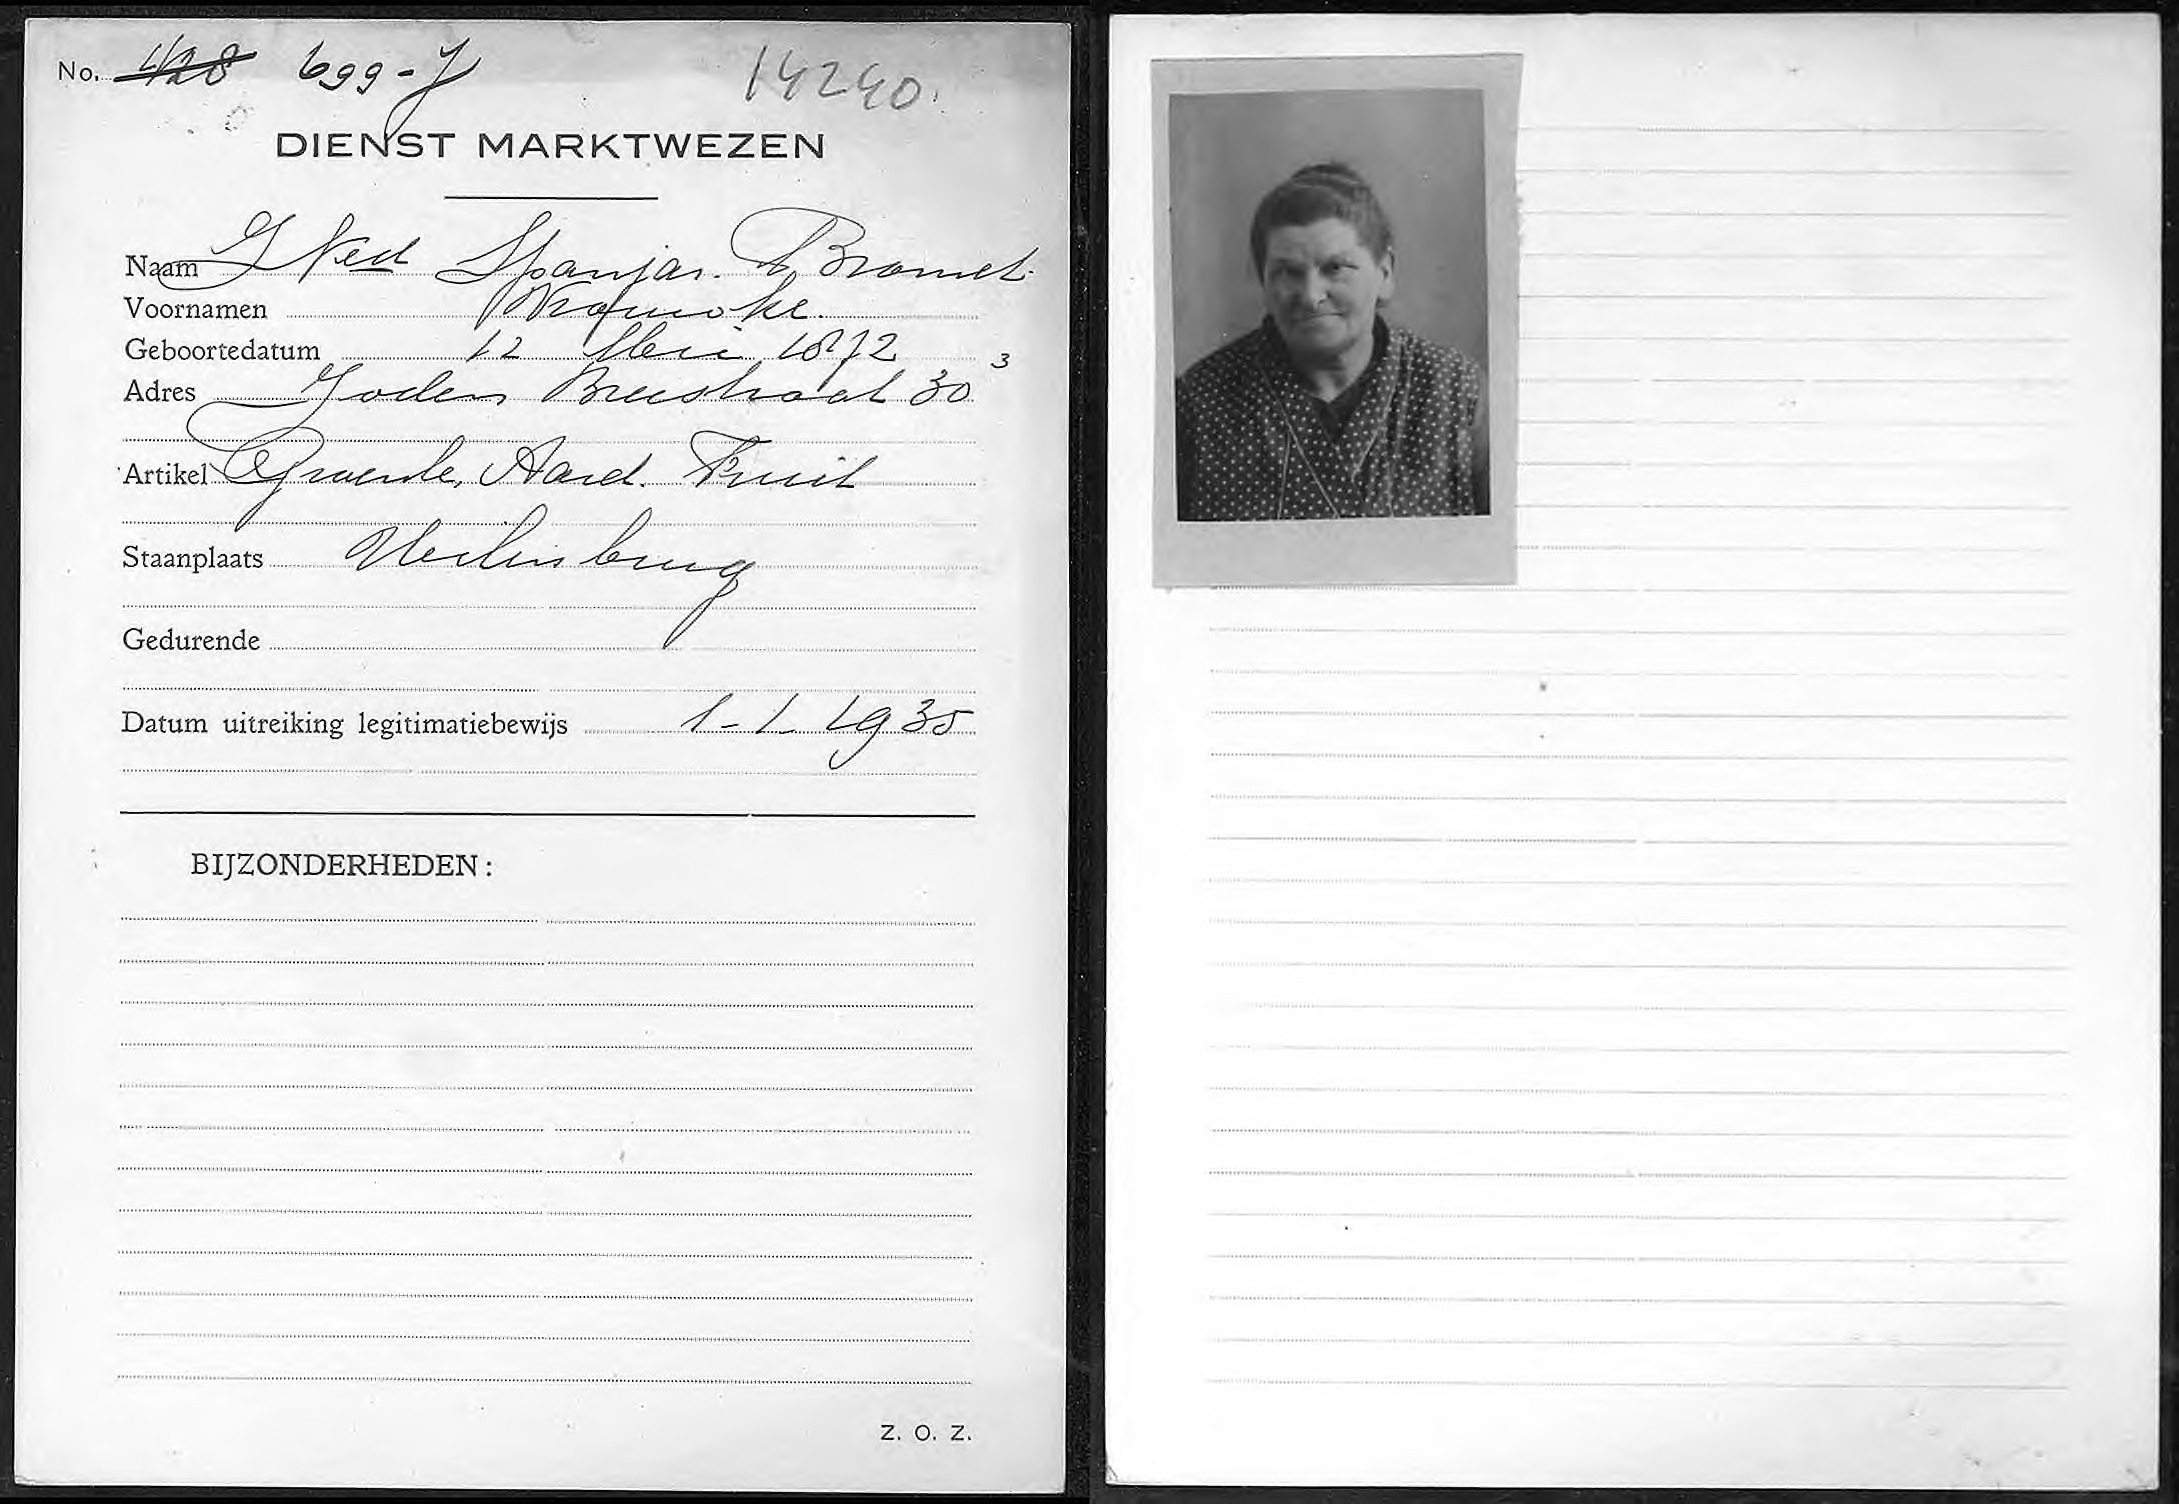 No. 428 699-J 14240.
DIENST MARKTWEZEN
Naam Spanjar. Bromet
Voornamen
Geboortedatum 12 Mei 1872
Adres Joden Breestraat 30 3
Artikel Groente, Aard. Fruit
Staanplaats
Gedurende
Datum uitreiking legitimatiebewijs 1-1-1935
BIJZONDERHEDEN:
Z. O. Z.